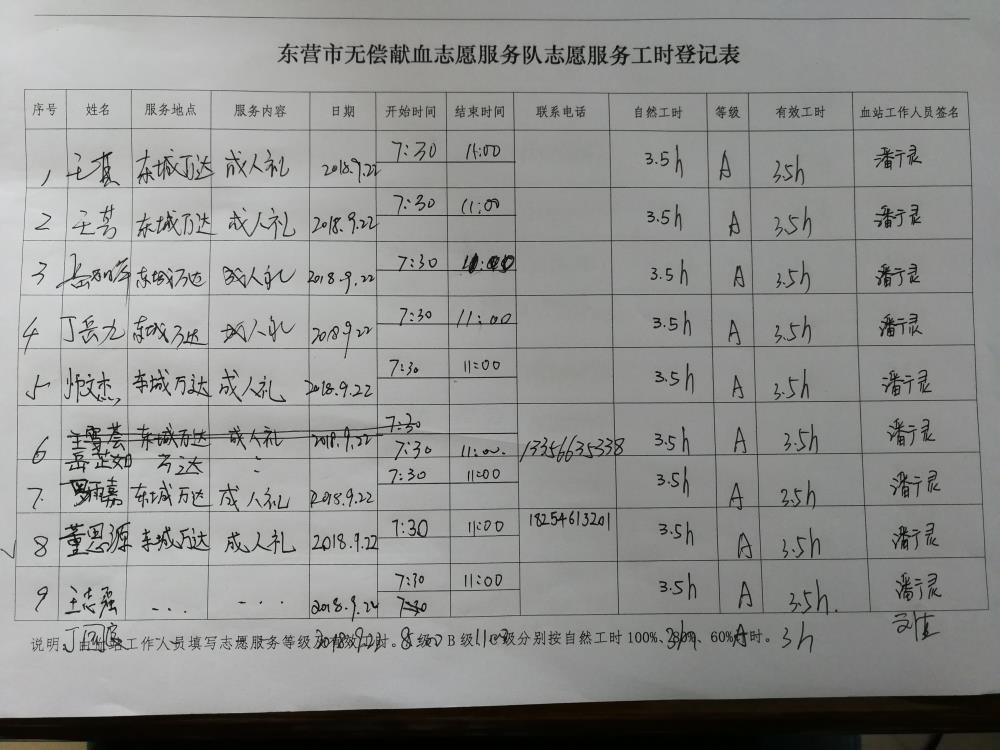 东营市无偿献血志愿服务队志愿服务工时登记表
序号 姓名 服务地点 服务内容 日期 开始时间 结束时间 联系电话 自然工时 等级 有效工时 血站工作人员签名
1, 王 东城万达 成人礼 2018.9.22 7:30 11:00 3.5h A 3.5h 潘宁灵
2 王 东城万达 成人礼 2018.9.22 7:30 11:00 3.5h A 3.5h 潘宁灵
3 岳 东城万达 成人礼 2018.9.22 7:30 11:00 3.5h A 3.5h 潘宁灵
4 丁岳九 东城万达 成人礼 2018.9.22 7:30 11:00 3.5h A 3.5h 潘宁灵
5 帅文杰 东城万达 成人礼 2018.9.22 7:30 11:00 3.5h A 3.5h 潘宁灵
6 王雪荟 东城万达 成人礼 2018.9.22 7:30
岳芷如 万达 : 7:30 11:00. 13356635338 3.5h A 3.5h 潘宁灵
7. 罗 嘉 东城万达 成人礼 2018.9.22 7:30 11:00 3.5h A 3.5h 潘宁灵
√ 8 董思源 东城万达 成人礼 2018.9.22 7:30 11:00 18254613201 3.5h A 3.5h 潘宁灵
9 王志强 ... ... 2018.9.22 7:30 11:00 3.5h A 3.5h. 潘宁灵
7:30
说明: 工作人员填写志愿服务等级 级 B级 级分别按自然工时100%、80%、60% 时。
丁 A 3h 刘